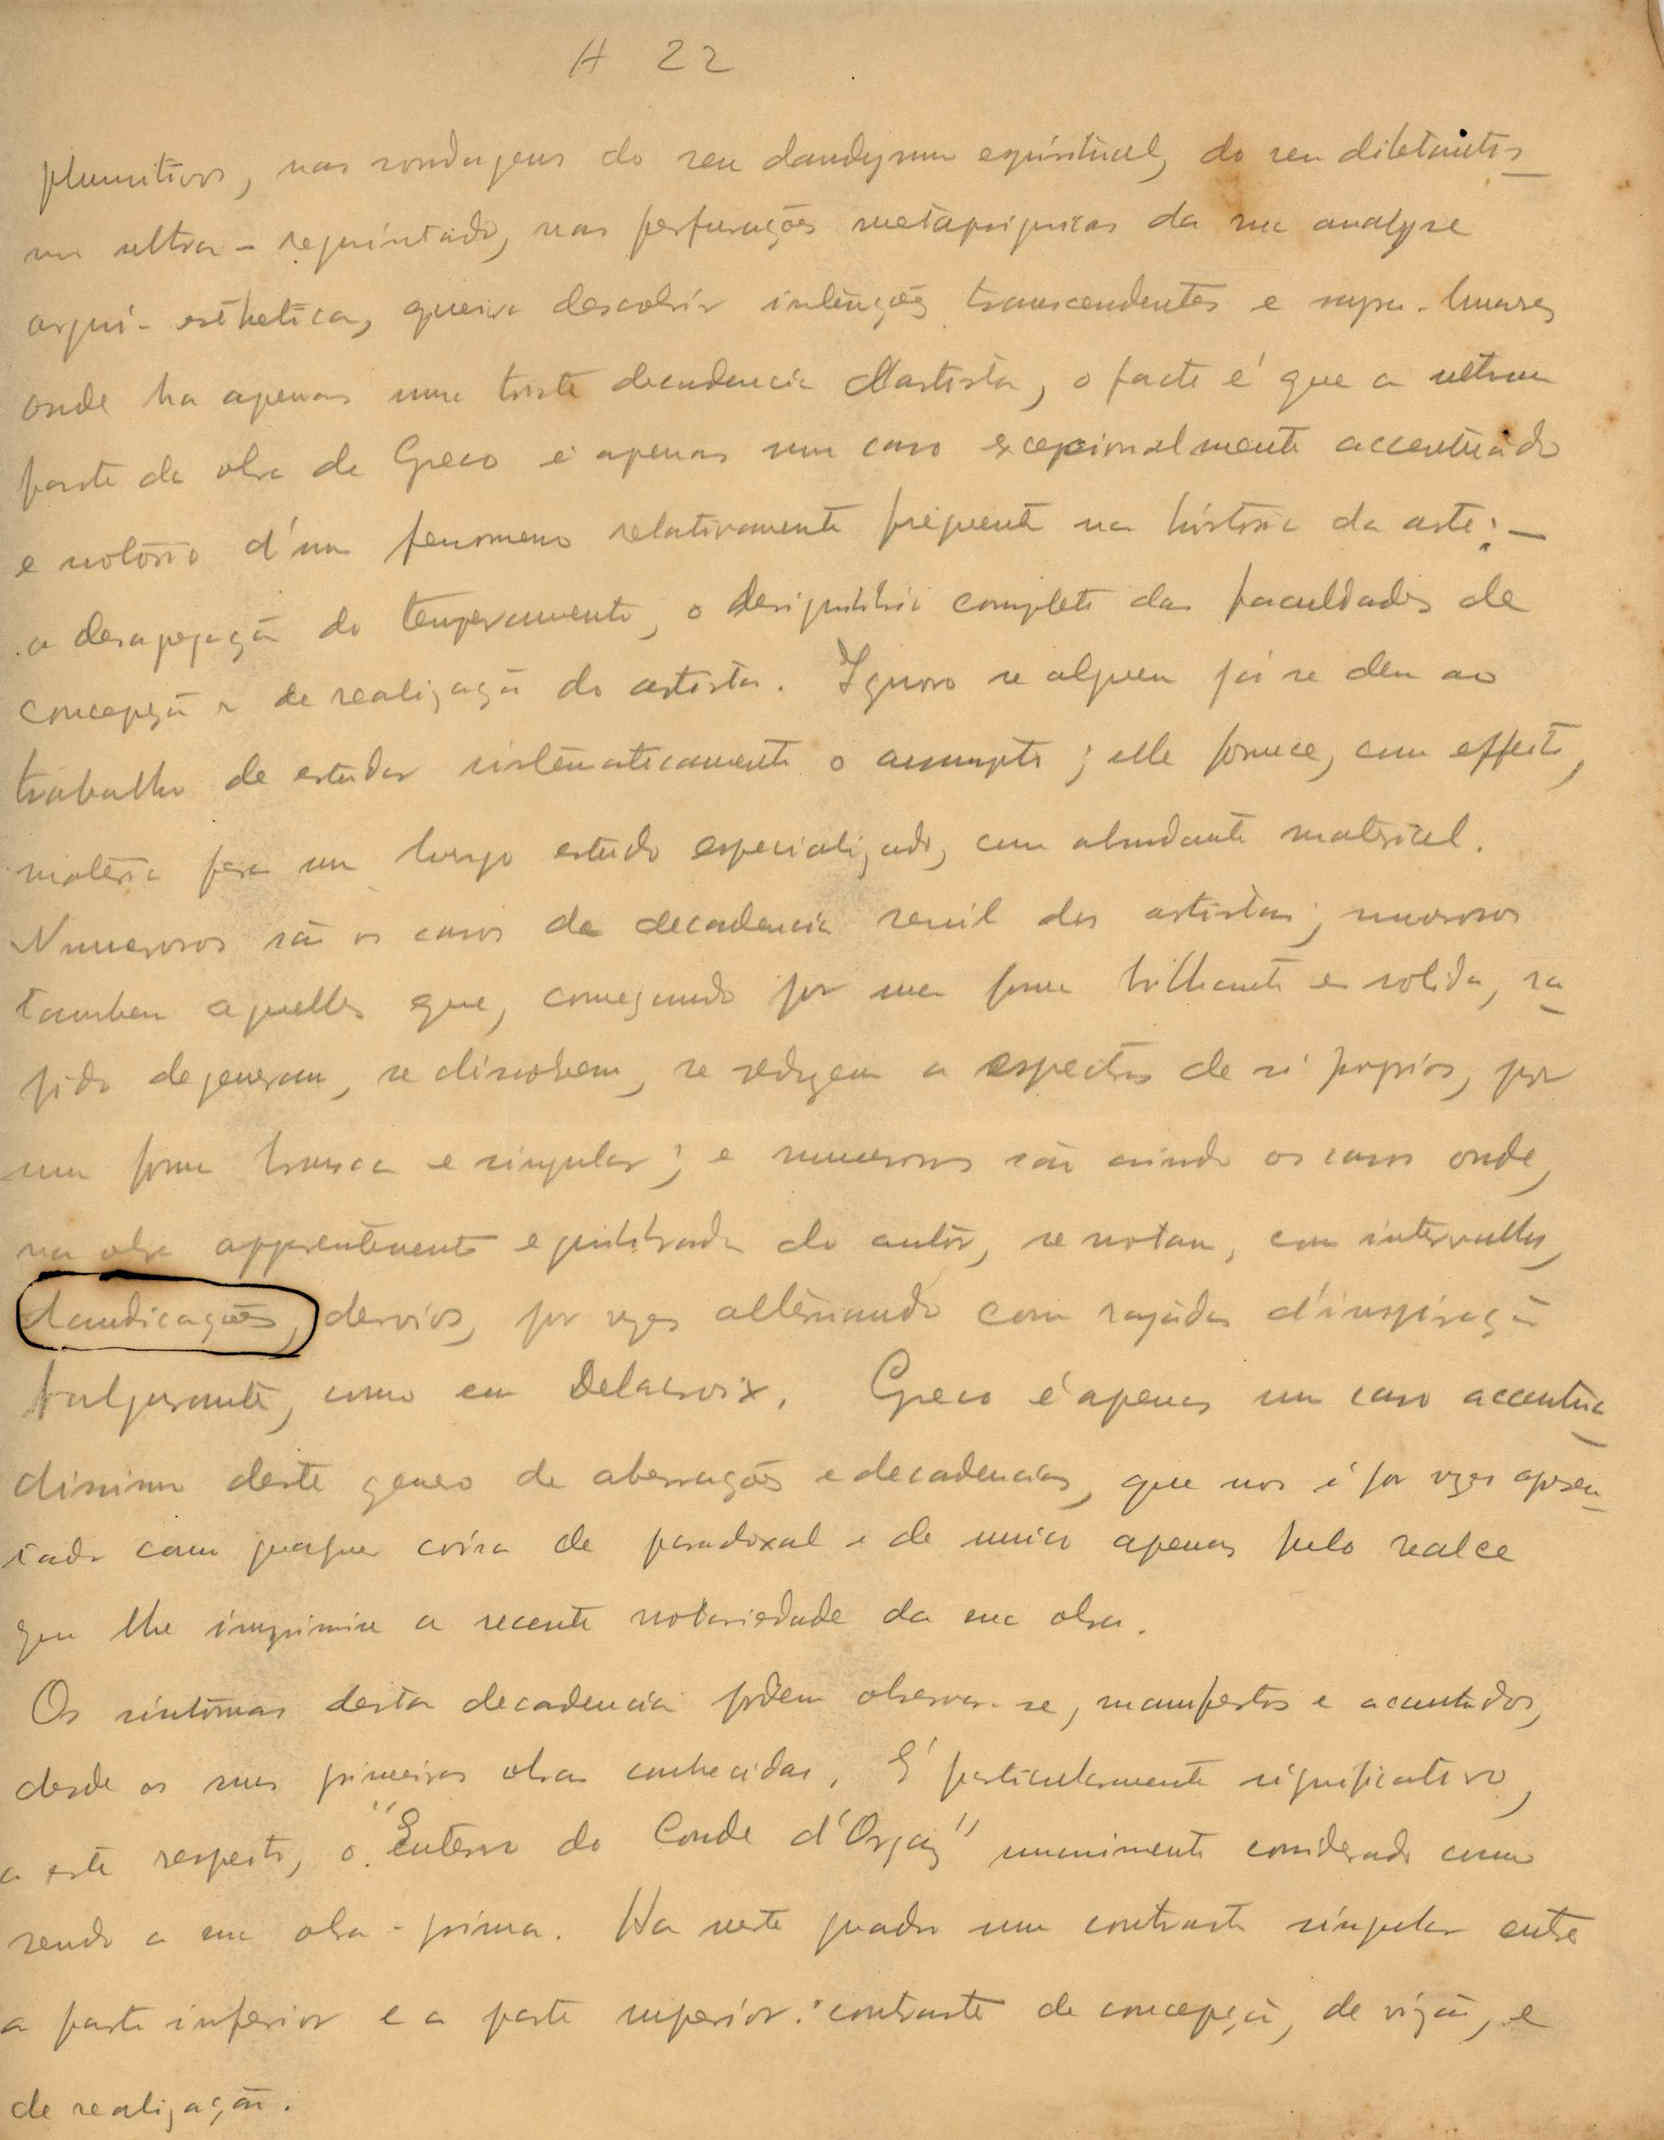 A 22
plumitivos, nas sondagens do seu dandysmo espiritual, do seu diletantis-
mo ultra-requintado, nas perfurações metapsiquicas da sua analyse
arqui-esthetica, queira descobrir intenções transcendentes e supra-lunares
onde ha apenas uma triste decadencia d'artista, o facto é que a ultima
parte da obra de Greco é apenas um caso excepcionalmente accentuado
e notorio d'um fenomeno relativamente frequente na historia da arte: —
a desagregação do temperamento, o desiquilibrio completo das faculdades de
concepção e de realização do artista. Ignoro se alguem já se deu ao
trabalho de estudar sistematicamente o assumpto; elle fornece, com effeito,
materia para um longo estudo especializado, com abundante material.
Numerosos são os casos de decadencia senil dos artistas; numerosos
tambem aquelles que, começando por uma forma brilhante e solida, ra-
pido degeneram, se dissolvem, se reduzem a espectros de si proprios, por
uma forma brusca e singular; e numerosos são ainda os casos onde,
na obra apparentemente equilibrada do autor, se notam, com intervallos,
claudicações, desvios, por vezes alternando com rajadas d'inspiração
fulgurante, como em Delacroix. Greco é apenas um caso accentua-
dissimo deste genero de aberrações e decadencias, que nos é por vezes apresen-
tado como qualquer coisa de paradoxal e de unico apenas pelo realce
que lhe imprimiu a recente notoriedade da sua obra.
Os sintomas desta decadencia pódem observar-se, manifestos e acentuados,
desde as suas primeiras obras conhecidas. É particularmente significativo,
a este respeito, o "Enterro do Conde d'Orgaz" unanimente considerado como
sendo a sua obra-prima. Ha neste quadro um contraste singular entre
a parte inferior e a parte superior: contraste de concepção, de vizão, e
de realização.